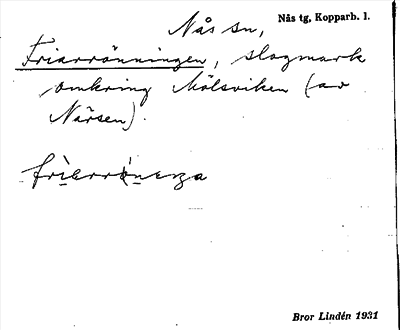 Nås sn,
Nås tg, Kopparb. l.
Friarrönningen, slogmark
omkring Mölsviken (av
Närsen).
Bror Lindén 1931